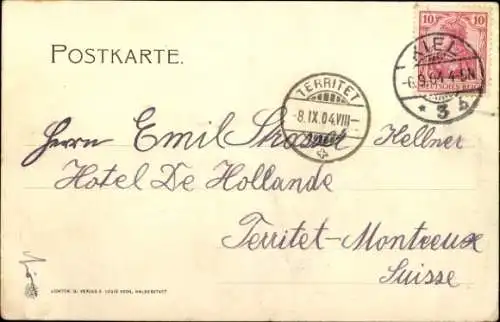 POSTKARTE.
10 10
DEUTSCHES REICH
KIEL
-6.9.04. 4-5N
* 3 b
TERRITET
-8.IX.04.VIII-
Herrn Emil Kellner
Hotel De Hollande
Territet-Montreux
Suisse
LOUIS KOCH, HALBERSTADT